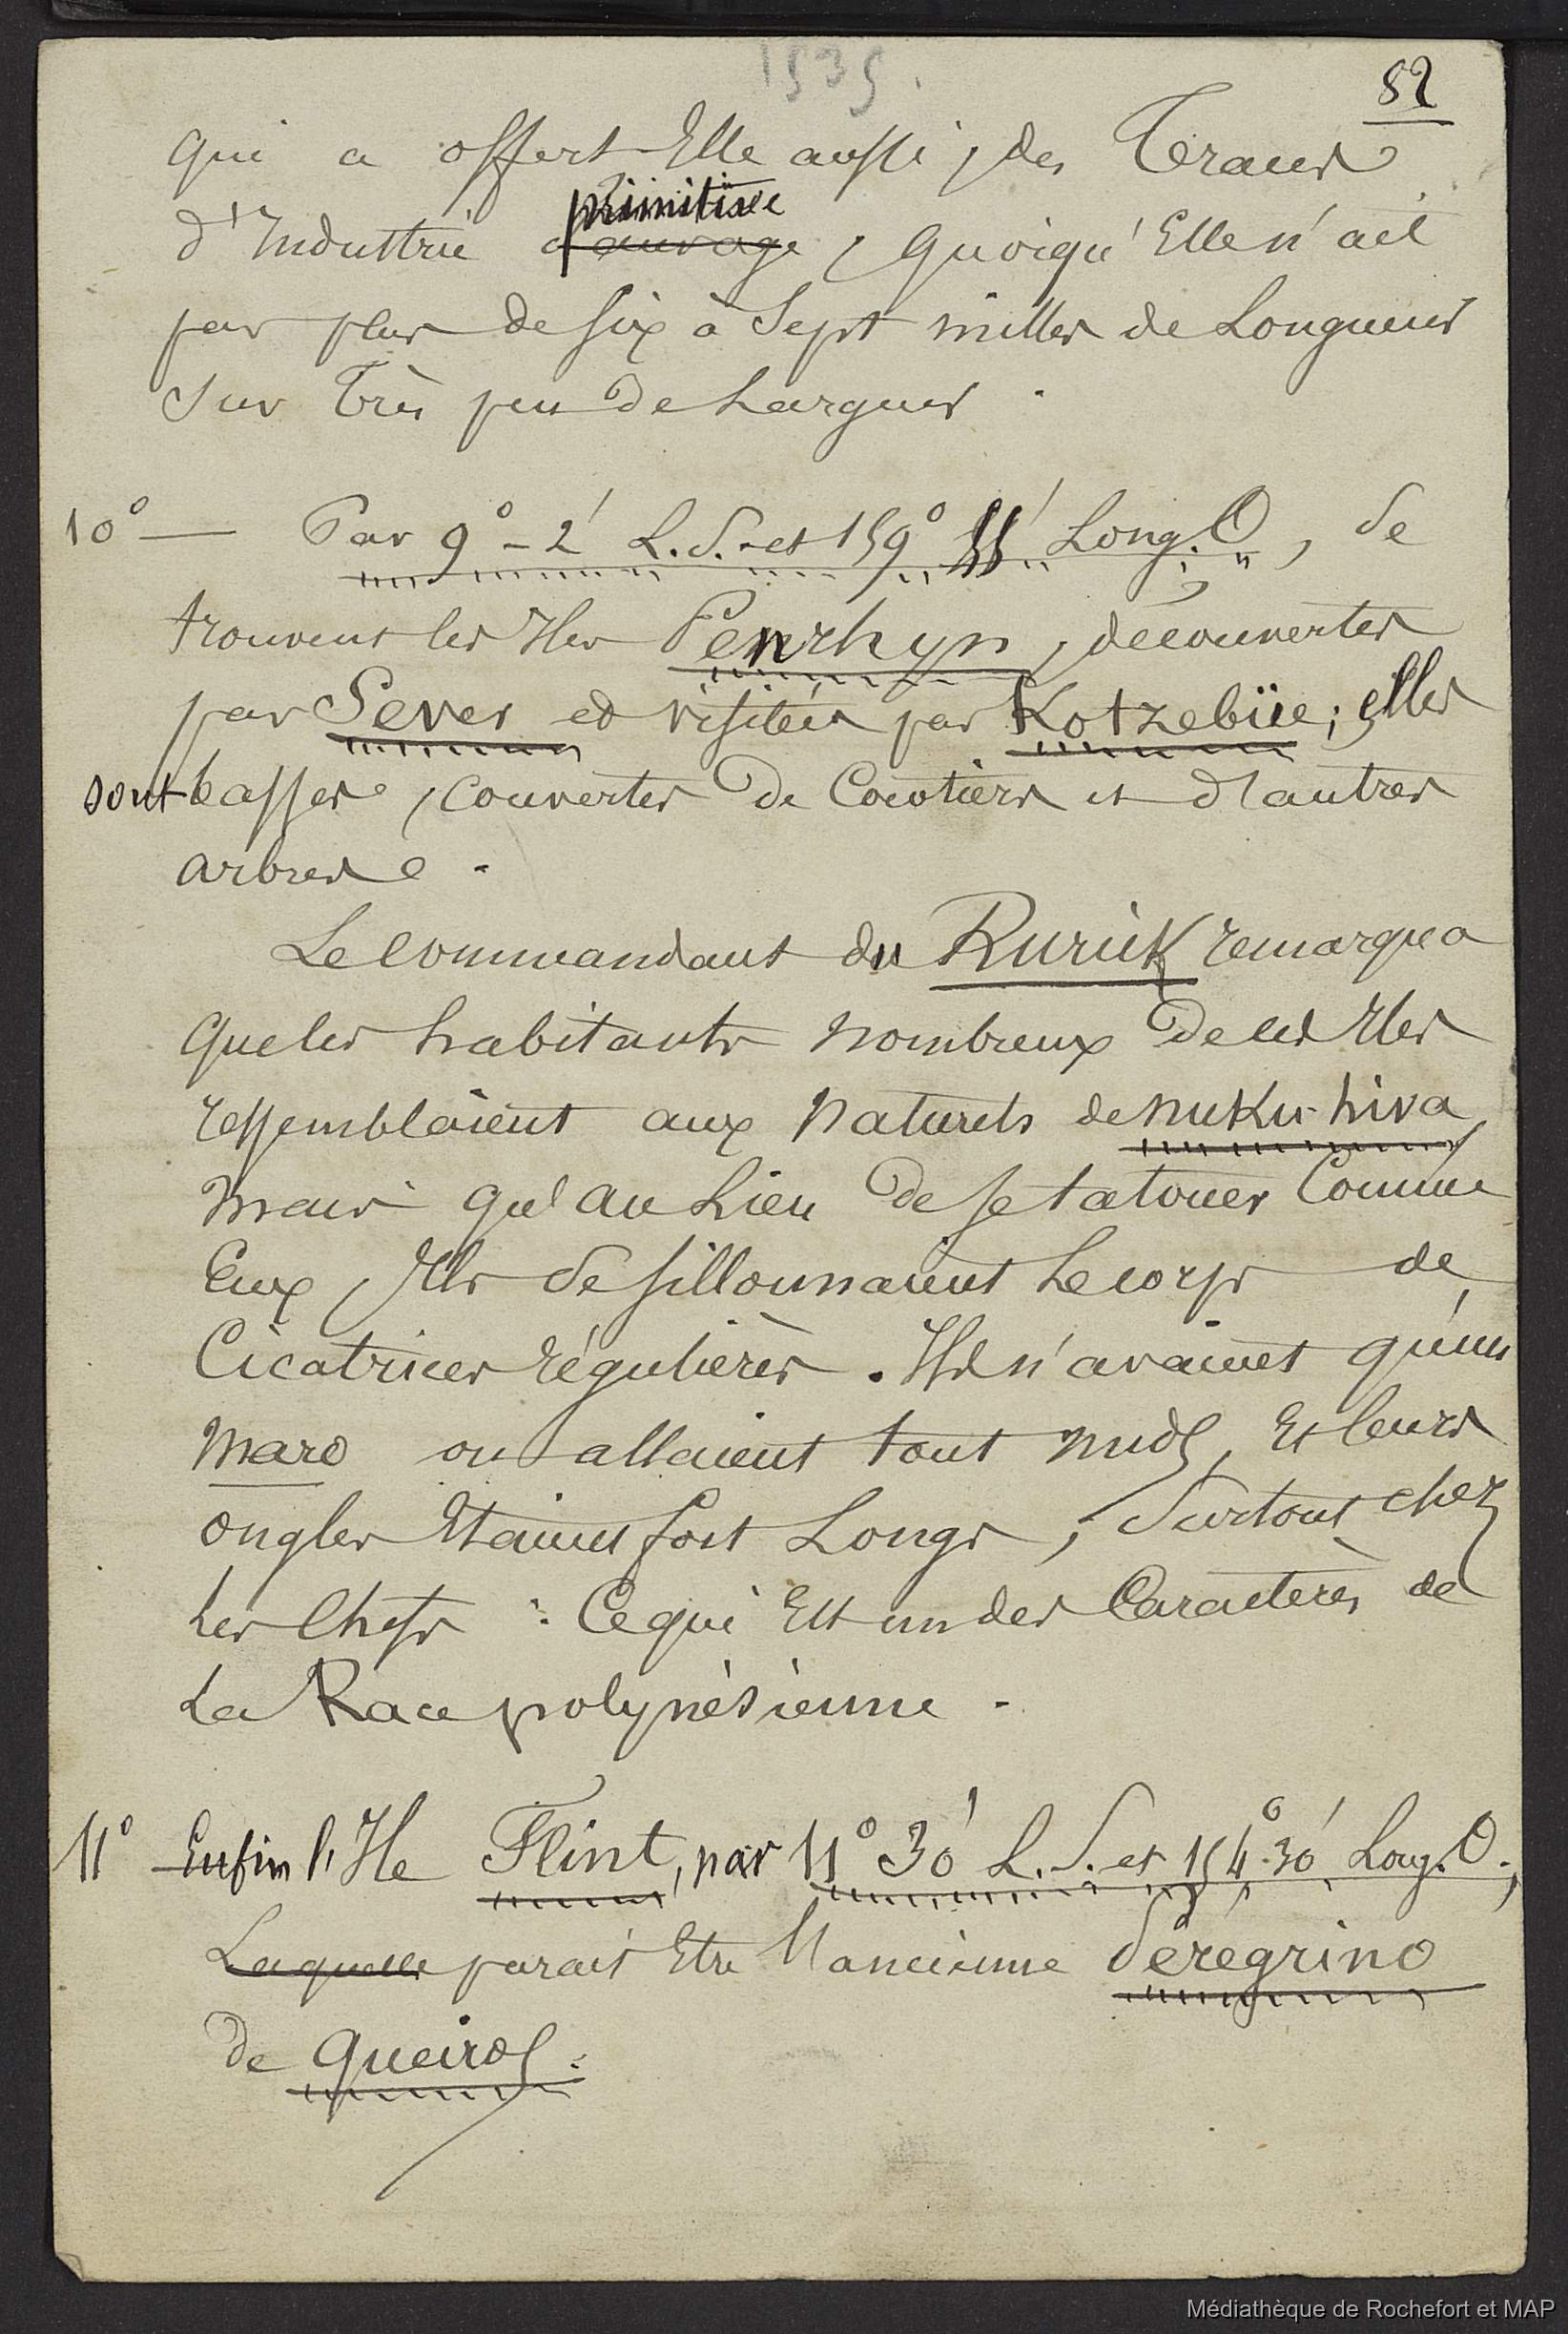 1535.
82
qui a offert Elle aussi, des Traces
d'Industrie sauvage primitive, quoiqu'Elle n'ait
pas plus de six à Sept milles de Longueur
sur très peu de Largeur.
10° — Par 9° - 2' L. S. et 159° 55' Long. O, se
trouvent les Iles Penrhyn, découvertes
par Sever et visitées par Kotzebüe; elles
sont basses, couvertes de Cocotiers et d'autres
arbres.
Le commandant du Rurick remarqua
que les habitants nombreux de ces Iles
ressemblaient aux naturels de nuku-hiva,
mais qu'au Lieu de se tatouer Comme
Eux, Ils se sillonnaient Le corps de
Cicatrices régulières. Ils n'avaient qu'un
maro ou allaient tout nuds, Et leurs
ongles Etaient fort Longs, surtout chez
Les Chefs : Ce qui Est un des Caractères de
La Race polynésienne.
11° Enfin l'Ile Flint, par 11° 30' L. S. et 154° 30' Long. O.,
Laquelle parait Etre l'ancienne Peregrino
de Queiros.
Médiathèque de Rochefort et MAP